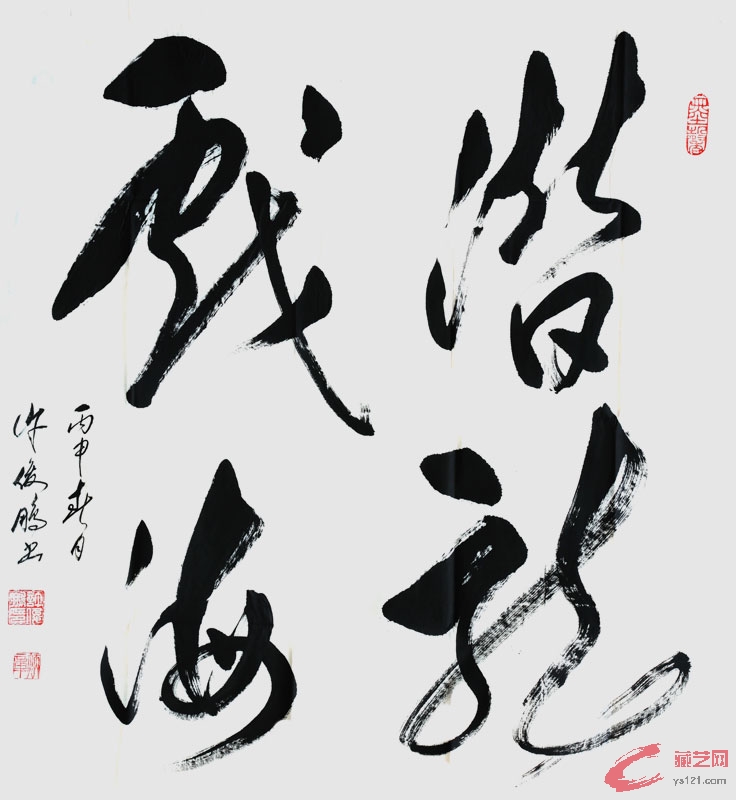 潜龙
戏海
丙申春月
许俊鹏书
藏艺网
ys121.com